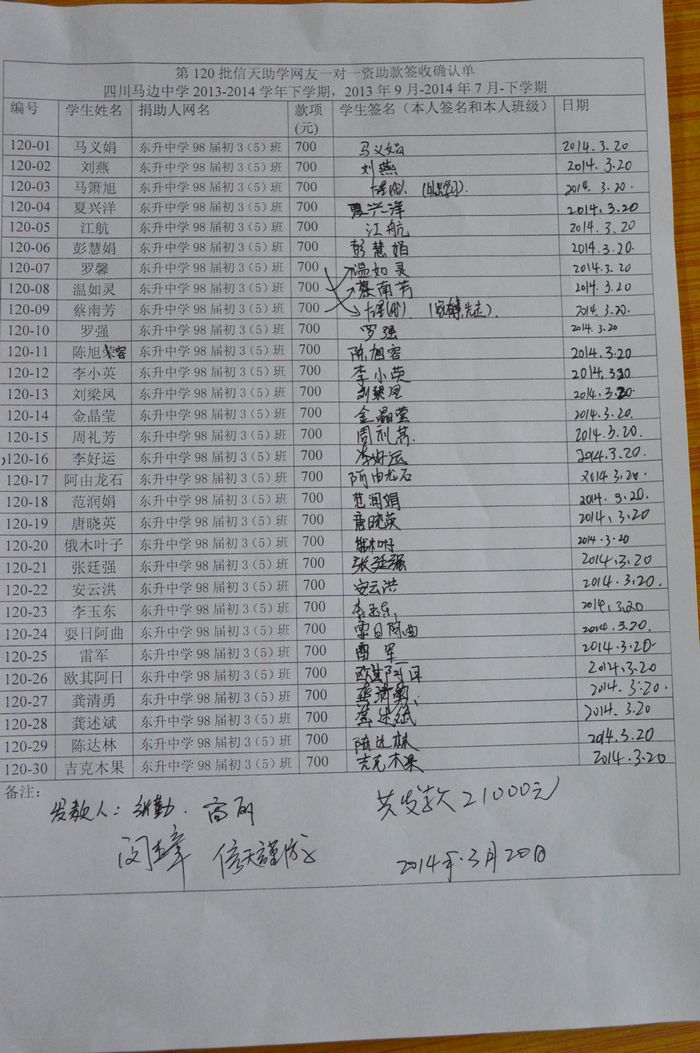 第 120 批信天助学网友一对一资助款签收确认单
四川马边中学 2013-2014 学年下学期，2013 年 9 月-2014 年 7 月-下学期
编号 学生姓名 捐助人网名 款项(元) 学生签名（本人签名和本人班级） 日期
120-01 马义娟 东升中学 98 届初 3（5）班 700 马义娟 2014.3.20
120-02 刘燕 东升中学 98 届初 3（5）班 700 刘燕 2014.3.20
120-03 马箫旭 东升中学 98 届初 3（5）班 700 2014.3.20.
120-04 夏兴洋 东升中学 98 届初 3（5）班 700 夏兴洋 2014.3.20
120-05 江航 东升中学 98 届初 3（5）班 700 江航 2014.3.20
120-06 彭慧娟 东升中学 98 届初 3（5）班 700 彭慧娟 2014.3.20.
120-07 罗馨 东升中学 98 届初 3（5）班 700 温如灵 2014.3.20
120-08 温如灵 东升中学 98 届初 3（5）班 700 蔡南芳 2014.3.20
120-09 蔡南芳 东升中学 98 届初 3（5）班 700 2014.3.20.
120-10 罗强 东升中学 98 届初 3（5）班 700 罗强 2014.3.20
120-11 陈旭容 东升中学 98 届初 3（5）班 700 陈旭容 2014.3.20
120-12 李小英 东升中学 98 届初 3（5）班 700 李小英 2014.3.20
120-13 刘梁凤 东升中学 98 届初 3（5）班 700 刘梁凤 2014.3.20
120-14 金晶莹 东升中学 98 届初 3（5）班 700 金晶莹 2014.3.20.
120-15 周礼芳 东升中学 98 届初 3（5）班 700 周礼芳 2014.3.20.
120-16 李好运 东升中学 98 届初 3（5）班 700 李好运 2014.3.20.
120-17 阿由龙石 东升中学 98 届初 3（5）班 700 阿由龙石 2014.3.20.
120-18 范润娟 东升中学 98 届初 3（5）班 700 范润娟 2014.3.20.
120-19 唐晓英 东升中学 98 届初 3（5）班 700 唐晓英 2014.3.20
120-20 俄木叶子 东升中学 98 届初 3（5）班 700 俄木叶子 2014.3.20
120-21 张廷强 东升中学 98 届初 3（5）班 700 张廷强 2014.3.20
120-22 安云洪 东升中学 98 届初 3（5）班 700 安云洪 2014.3.20.
120-23 李玉东 东升中学 98 届初 3（5）班 700 李玉东 2014.3.20
120-24 耍日阿曲 东升中学 98 届初 3（5）班 700 2014.3.20.
120-25 雷军 东升中学 98 届初 3（5）班 700 雷军 2014.3.20
120-26 欧其阿日 东升中学 98 届初 3（5）班 700 欧其阿日 2014.3.20
120-27 龚清勇 东升中学 98 届初 3（5）班 700 龚清勇 2014.3.20.
120-28 龚述斌 东升中学 98 届初 3（5）班 700 龚述斌 2014.3.20
120-29 陈达林 东升中学 98 届初 3（5）班 700 陈达林 2014.3.20
120-30 吉克木果 东升中学 98 届初 3（5）班 700 吉克木果 2014.3.20
备注：
发款人： 共发款 21000元
信天谨 2014年.3月20日